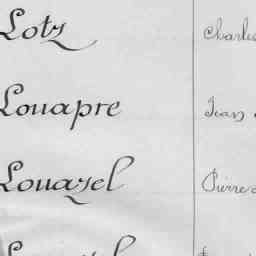 Lotz Charles
Louapre Jean
Louazel Pierre